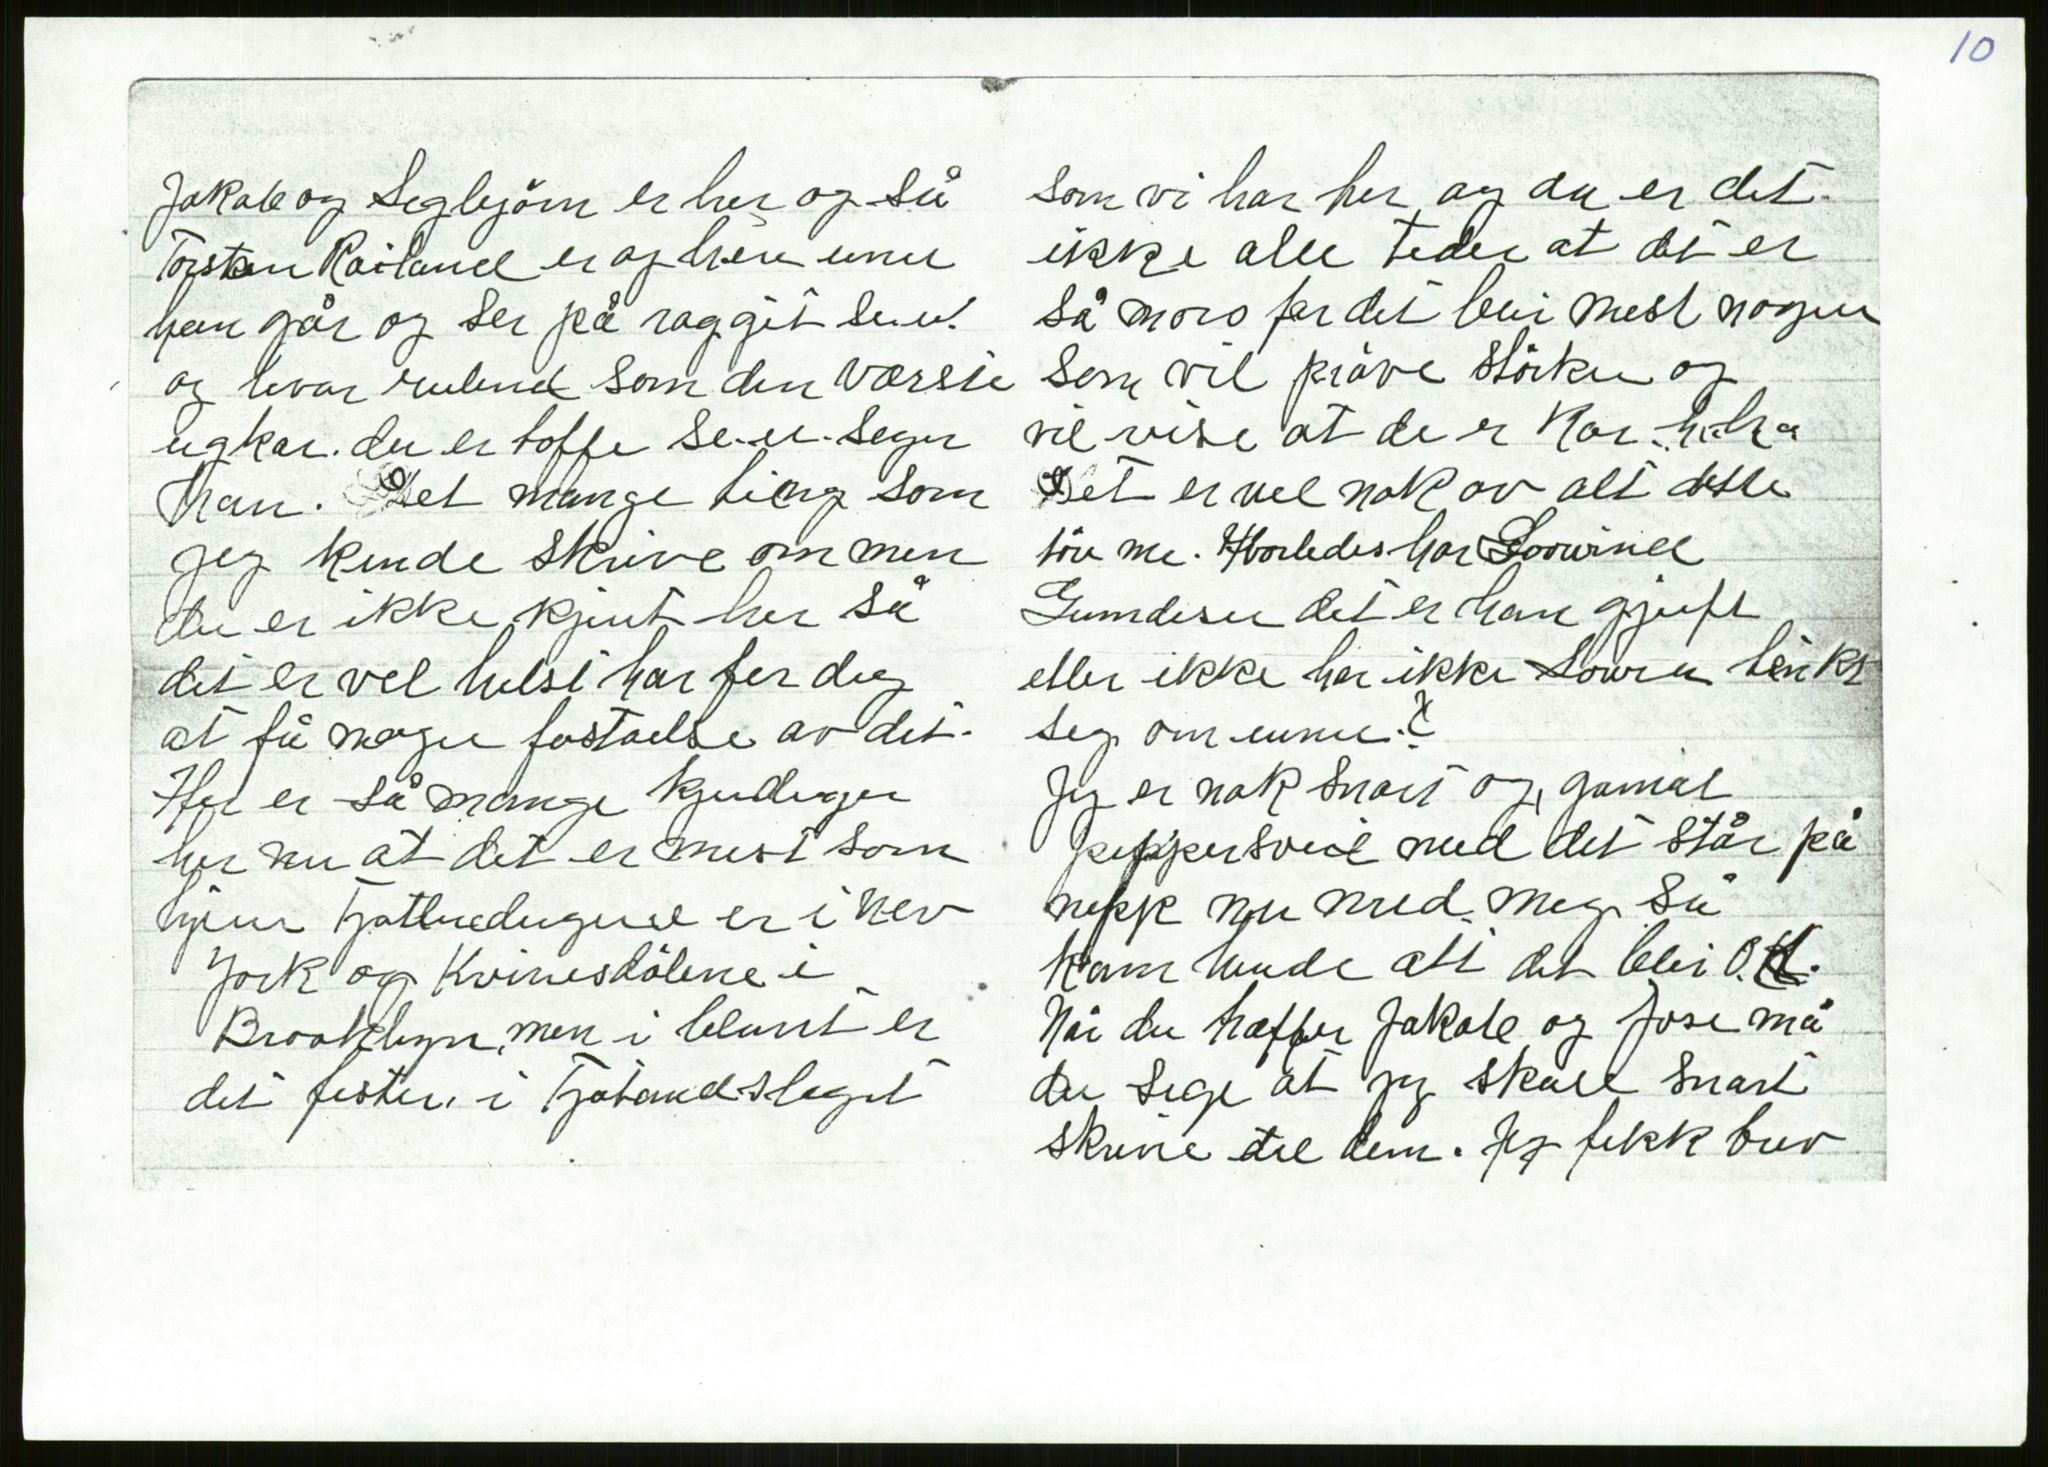 10
Jakob og Segbjörn er her og så
Torsten Röiland er og her enu
han går og ser på raggit se.u.
og bvar rubend som den værste
ugkar. du er töffe se.u. seger
han. Det mange ting som
jeg kunde skrive om men
du er ikke kjent her så
det er vel helst har for deg
at få nogen fostaelse av det.
Her er så mange kjendinger
her nu at det er mest som
hjem Fjotlendingene er i New
York og Kvinesdölene i
Brooklyn, men i blant er
det fester i Fjotlandslaget
som vi har her og da er det
ikke alle tider at det er
så moro for det blir mest nogen
som vil pröve störken og
vil vise at de er Kar. ha.ha
Det er vel nok av alt dette
tör me. Hvorledes har
Gumdesen det er han gjeft
eller ikke har ikke tenkt
seg om enu?
Jeg er nok snart og, gamal
peppersvend med det står på
nepp nu med meg. Så
kann hende att det blir O.K.
Når du træffer Jakob og Jose må
du sege at jeg skall snart
skrive til dem. Jeg fekk brev